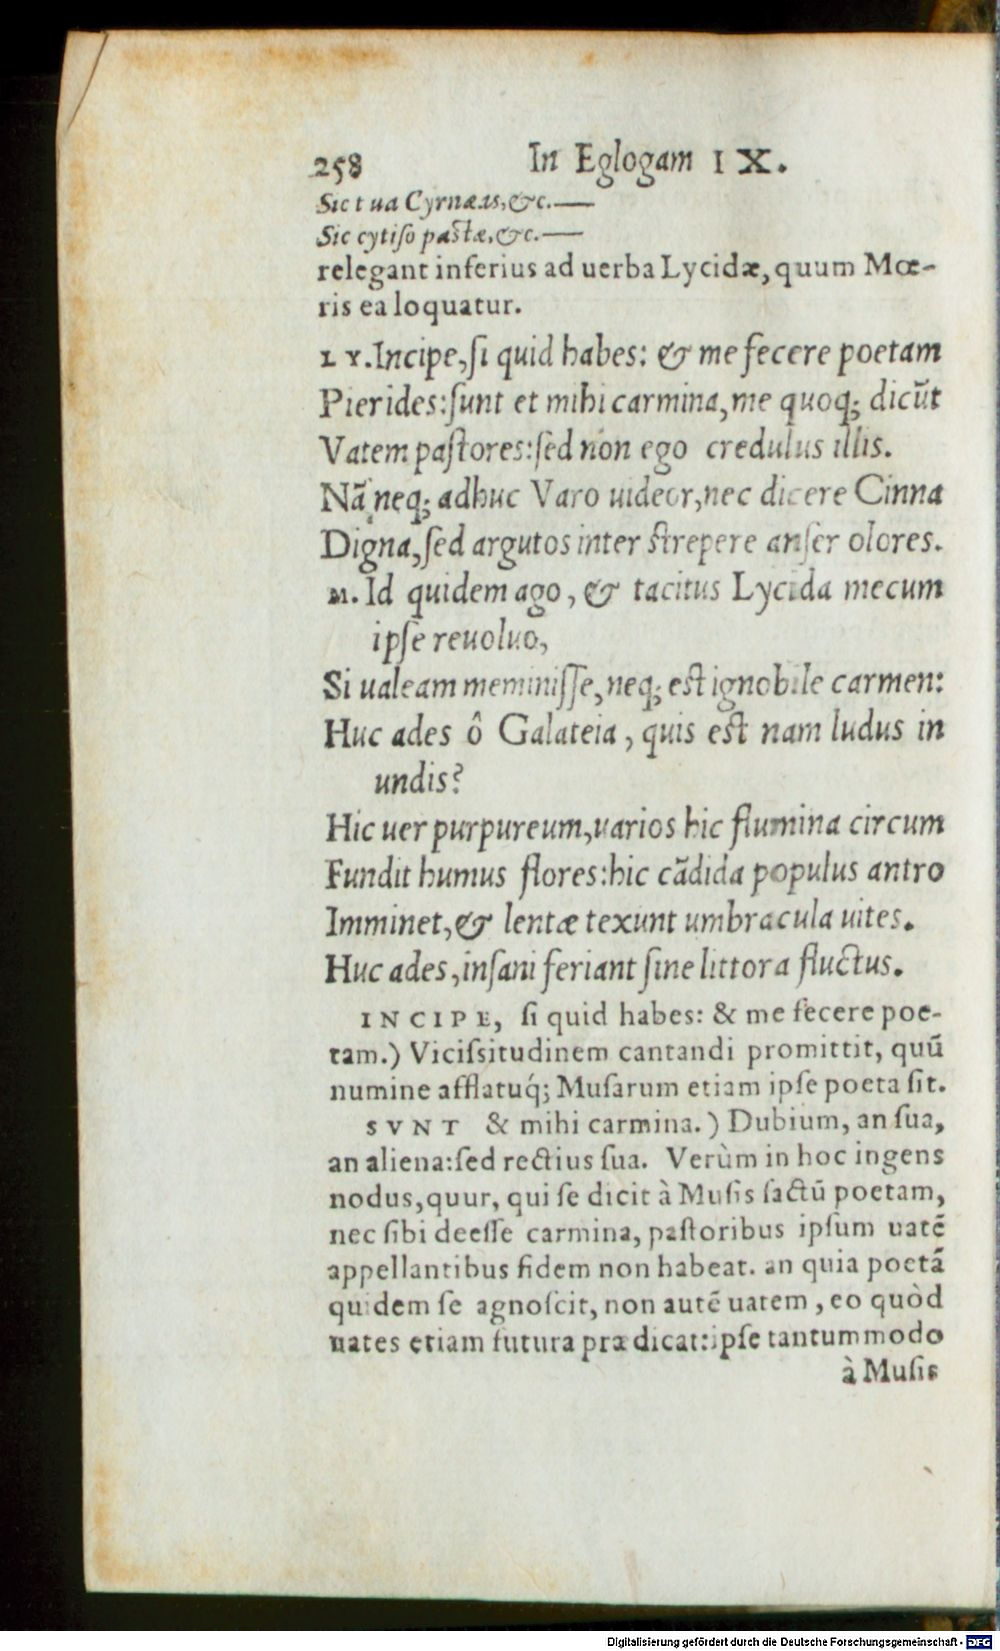 258 In Eglogam IX.
Sic tua Cyrnæas, &c.—
Sic cytiſo paſtæ, &c.—
relegant inferius ad uerba Lycidæ, quum Mœ-
ris ea loquatur.
LY. Incipe, ſi quid habes: & me fecere poetam
Pierides: ſunt et mihi carmina, me quoq; dicūt
Vatem paſtores: ſed non ego credulus illis.
Nã neq; adhuc Varo uideor, nec dicere Cinna
Digna, ſed argutos inter ſtrepere anſer olores.
M. Id quidem ago, & tacitus Lycida mecum
ipſe reuoluo,
Si ualeam meminiſſe, neq; eſt ignobile carmen:
Huc ades ô Galateia, quis eſt nam ludus in
undis?
Hic uer purpureum, uarios hic flumina circum
Fundit humus flores: hic cãdida populus antro
Imminet, & lentæ texunt umbracula uites.
Huc ades, inſani feriant ſine littora fluctus.
INCIPE, ſi quid habes: & me fecere poe-
tam.) Viciſsitudinem cantandi promittit, quū
numine afflatuq́; Muſarum etiam ipſe poeta ſit.
SVNT & mihi carmina.) Dubium, an ſua,
an aliena: ſed rectius ſua. Verùm in hoc ingens
nodus, quur, qui ſe dicit à Muſis factū poetam,
nec ſibi deeſſe carmina, paſtoribus ipſum uatẽ
appellantibus fidem non habeat. an quia poetã
quidem ſe agnoſcit, non autẽ uatem, eo quòd
uates etiam futura prædicat: ipſe tantummodo
à Muſis
Digitalisierung gefördert durch die Deutsche Forschungsgemeinschaft - DFG